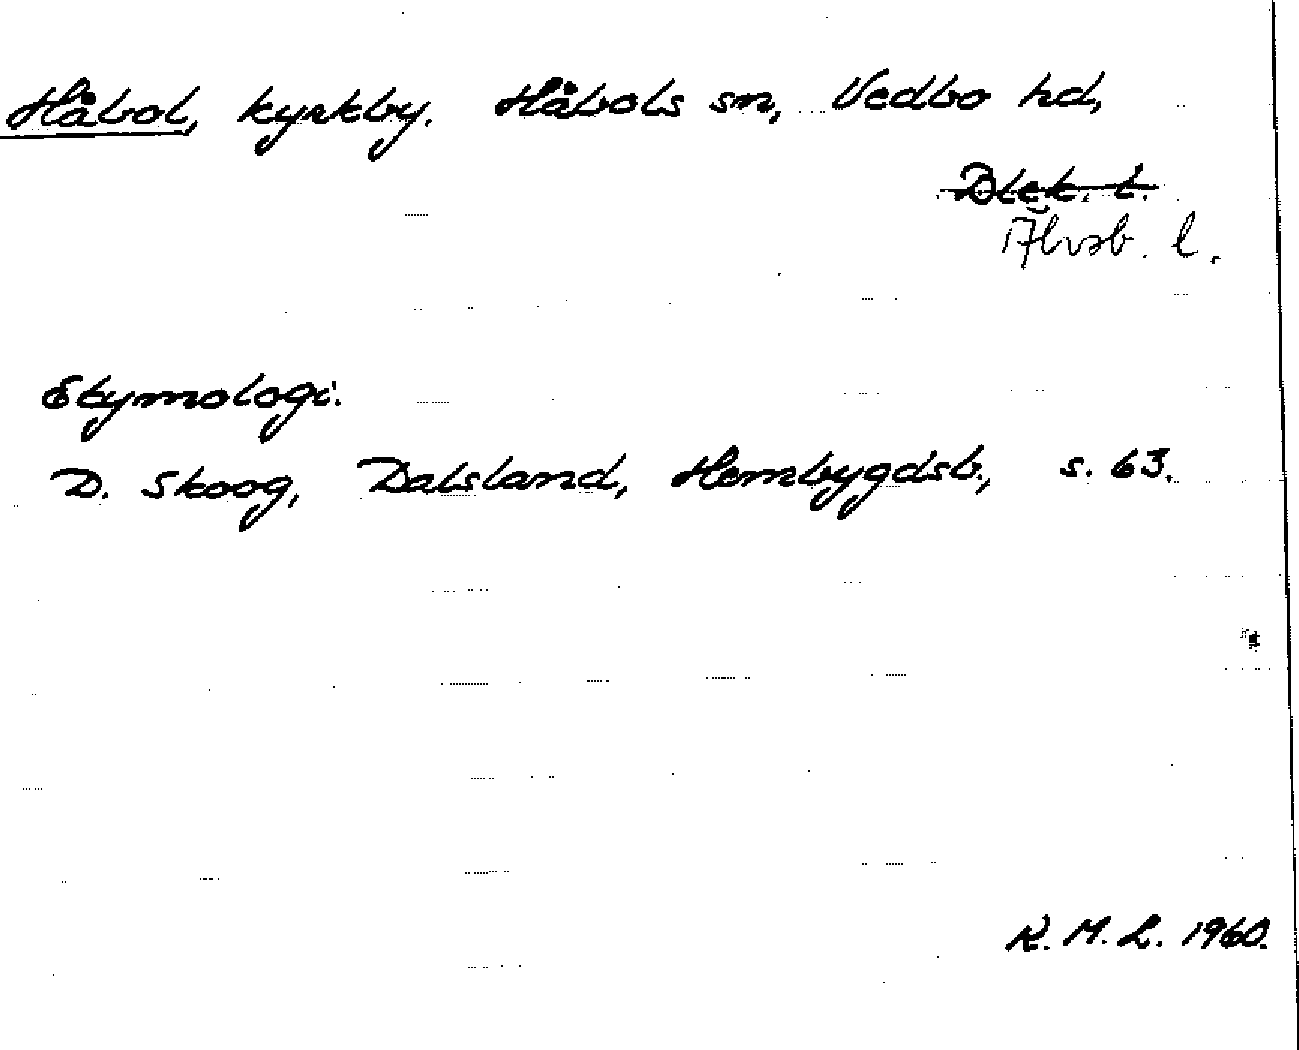 Håbol, kyrkby. Håbols sn, Vedbo hd,
Dlsk. l.
Älvsb. l.
Etymologi:
D. Skoog, Dalsland, Hembygdsb., s. 63.
K. M. L. 1960.